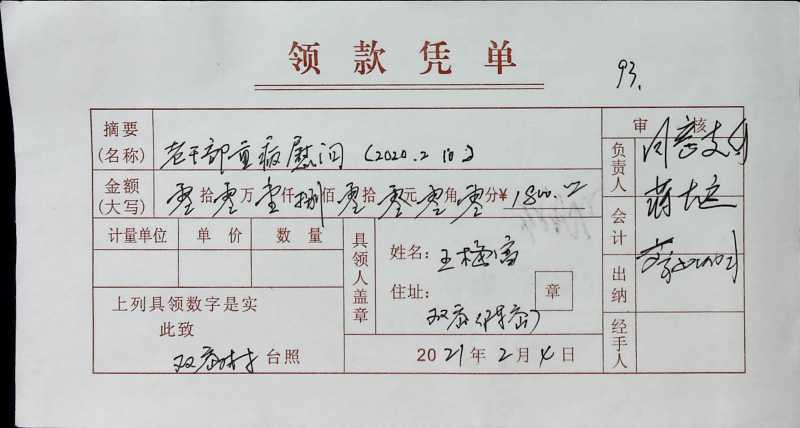 领款凭单
93.
摘要
(名称)
老干部重病慰问 (2020.2
审 核
金额
(大写)
零拾零万壹仟捌佰零拾零元零角零分¥ 1800.00
负责人
同意支付
会计
计量单位 单价 数量
具领人盖章
姓名: 王梅高
住址:
章
出纳
上列具领数字是实
此致
台照
2021年2月4日
经手人